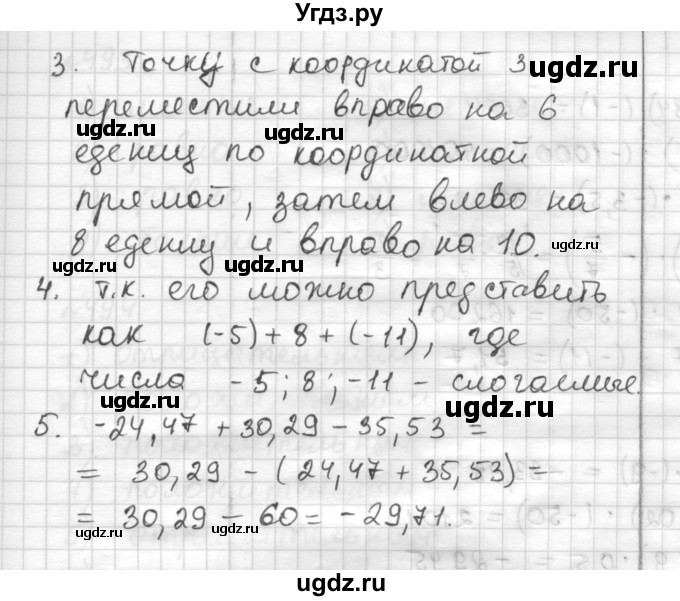 Угдз.ру
3. Точку с координатой 3
переместили вправо на 6
едениц по координатной
прямой, затем влево на
8 едениц и вправо на 10.
4. т.к. его можно представить
как (-5) + 8 + (-11), где
числа -5; 8; -11 - слогаемые.
5. -24,47 + 30,29 - 35,53 =
= 30,29 - (24,47 + 35,53) =
= 30,29 - 60 = -29,71.
ugdz.ru
ugdz.ru
ugdz.ru
ugdz.ru
ugdz.ru
ugdz.ru
ugdz.ru
ugdz.ru
ugdz.ru
ugdz.ru
ugdz.ru
ugdz.ru
ugdz.ru
ugdz.ru